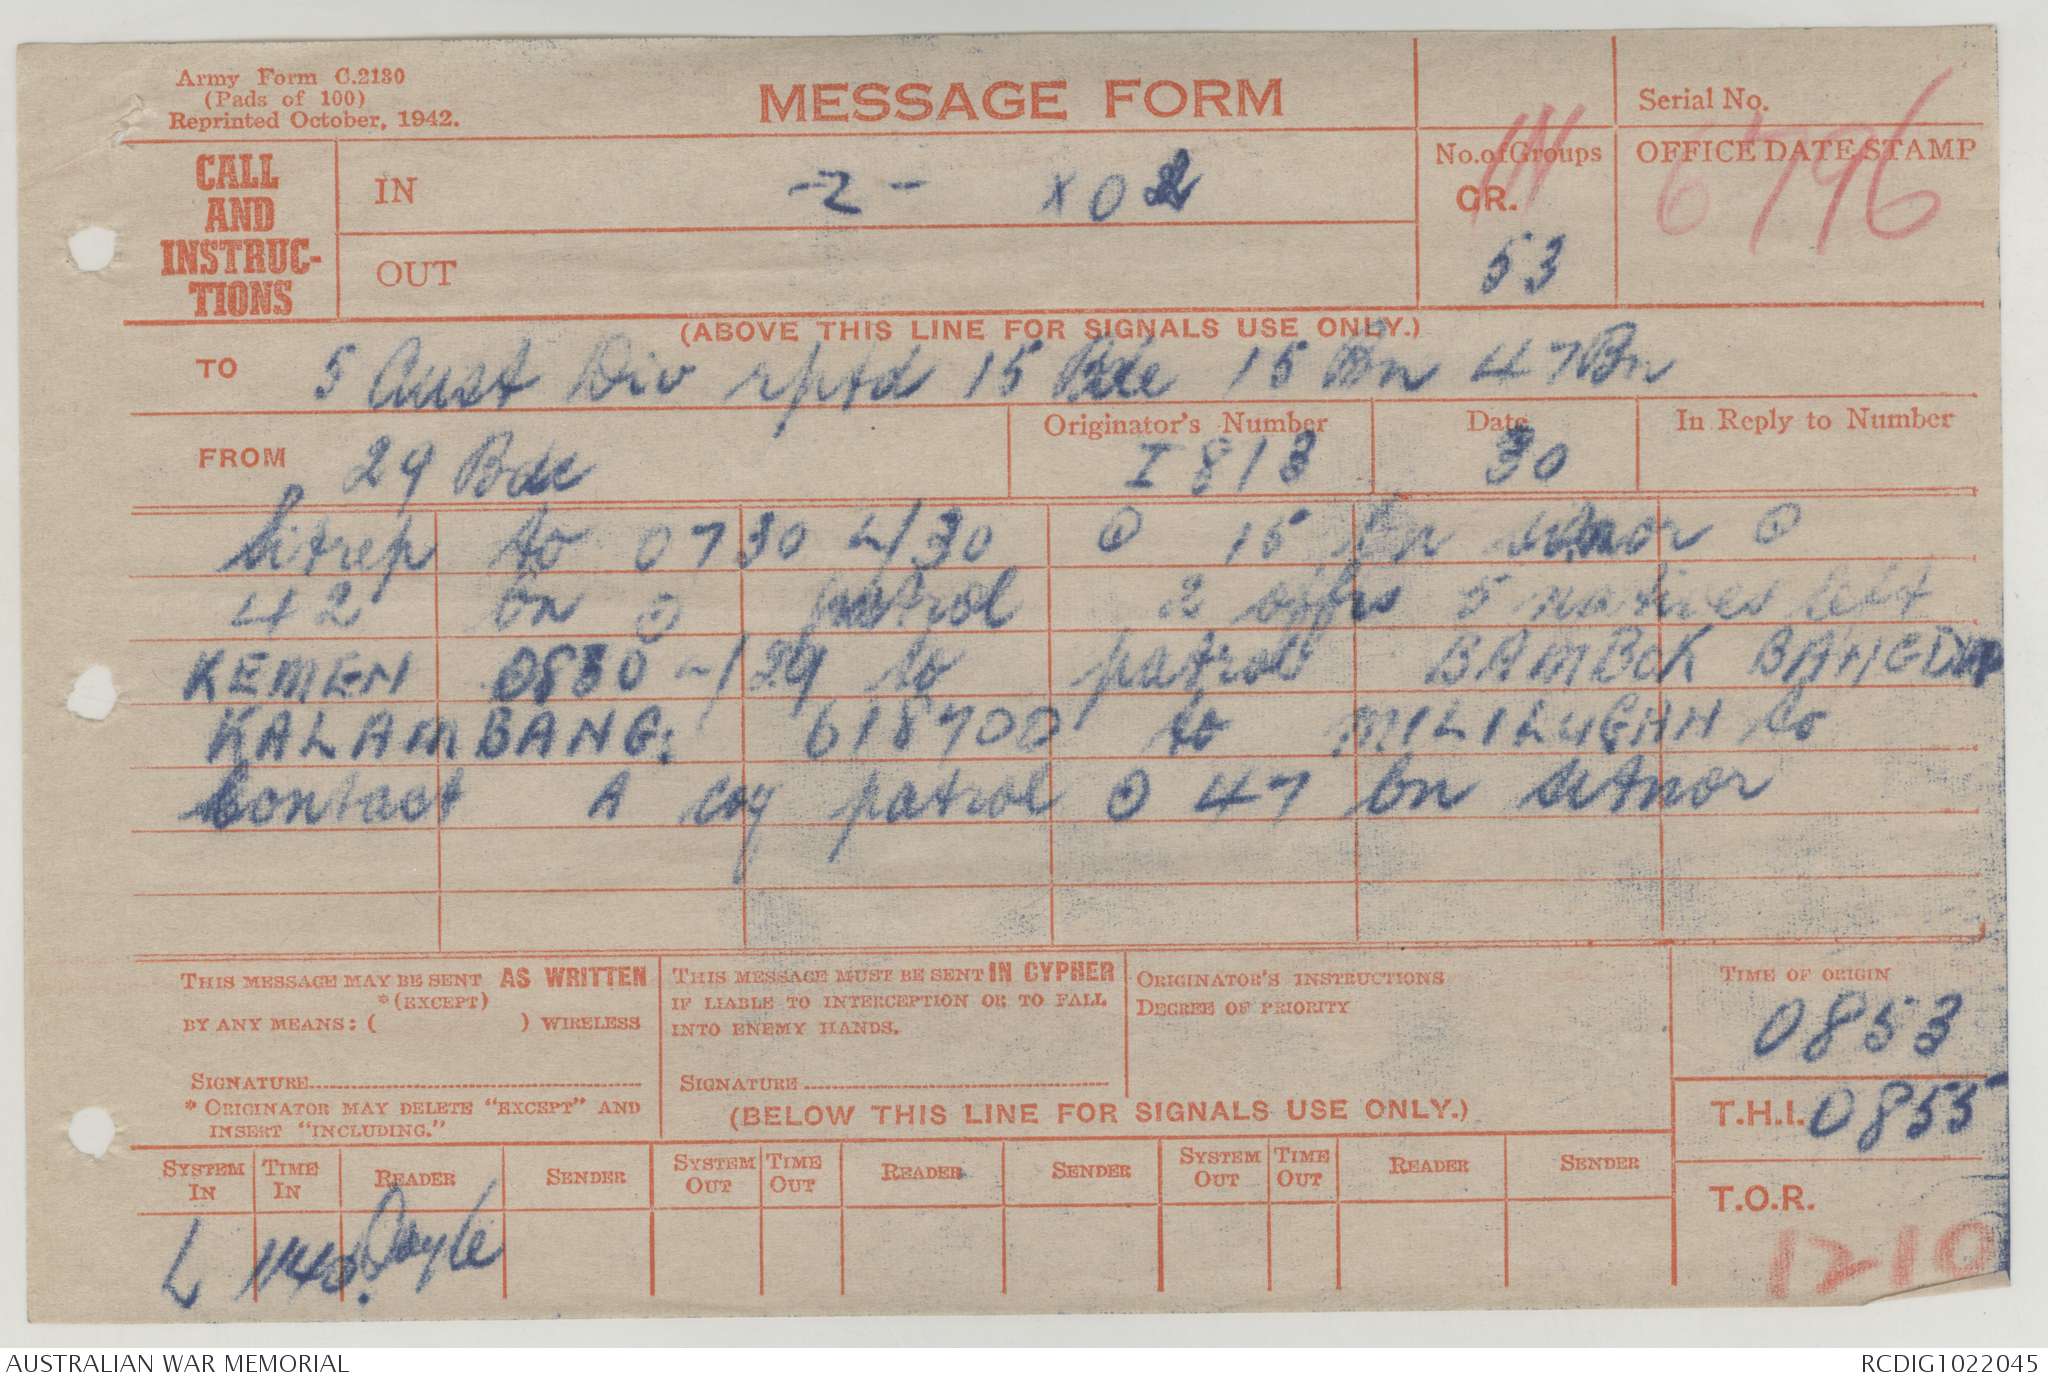 Army Form C.2130
(Pads of 100)
Reprinted October, 1942.
MESSAGE FORM
Serial No.
CALL AND INSTRUC-TIONS
IN -2- X 0 2
No. of Groups
GR.
53
OFFICE DATE STAMP
6796
OUT
(ABOVE THIS LINE FOR SIGNALS USE ONLY.)
TO 5 Aust Div rptd 15 Bde 15 Bn 47 Bn
FROM 29 Bde
Originator's Number
I 813
Date
30
In Reply to Number
Sitrep to 0730 L/30 ⊙ 15 bn sitnor ⊙
42 bn ⊙ patrol 2 offrs 5 natives left
KEMEN 0830 L/29 to patrol BAMBOK
KALAMBANG: 618700 to MILILUGHN to
Contact A coy patrol ⊙ 47 bn sitnor
THIS MESSAGE MAY BE SENT AS WRITTEN
*(EXCEPT)
BY ANY MEANS: ( ) WIRELESS
SIGNATURE
* ORIGINATOR MAY DELETE "EXCEPT" AND
INSERT "INCLUDING."
THIS MESSAGE MUST BE SENT IN CYPHER
IF LIABLE TO INTERCEPTION OR TO FALL
INTO ENEMY HANDS.
SIGNATURE
ORIGINATOR'S INSTRUCTIONS
DEGREE OF PRIORITY
TIME OF ORIGIN
0853
(BELOW THIS LINE FOR SIGNALS USE ONLY.)
T.H.I. 0855
SYSTEM IN
TIME IN
READER
SENDER
SYSTEM OUT
TIME OUT
READER
SENDER
SYSTEM OUT
TIME OUT
READER
SENDER
T.O.R.
1210
L 1140 Doyle
AUSTRALIAN WAR MEMORIAL
RCDIG1022045